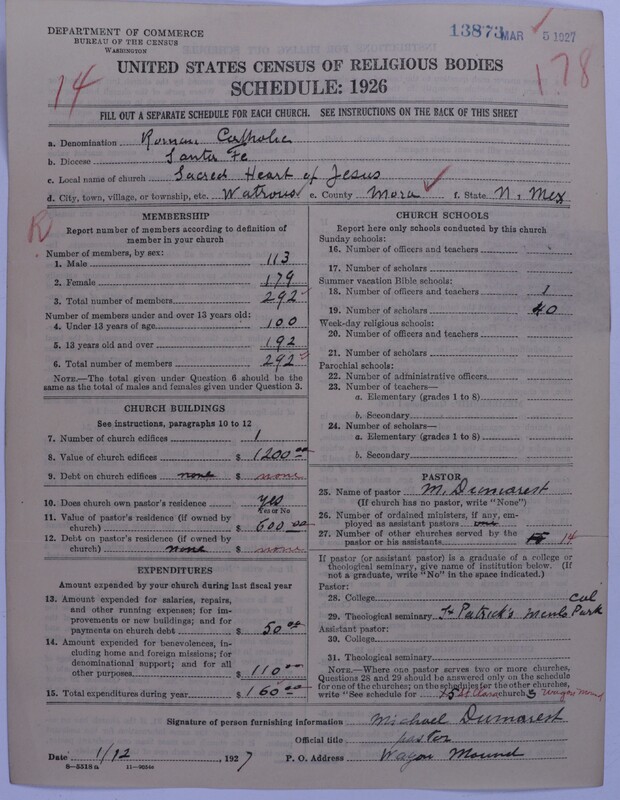 DEPARTMENT OF COMMERCE
BUREAU OF THE CENSUS
WASHINGTON
13873 MAR 5 1927
14
178
UNITED STATES CENSUS OF RELIGIOUS BODIES
SCHEDULE: 1926
FILL OUT A SEPARATE SCHEDULE FOR EACH CHURCH. SEE INSTRUCTIONS ON THE BACK OF THIS SHEET
a. Denomination Roman Catholic
b. Diocese Santa Fe
c. Local name of church Sacred Heart of Jesus
d. City, town, village, or township, etc. Watrous e. County Mora f. State N. Mex
R
MEMBERSHIP
Report number of members according to definition of member in your church
Number of members, by sex:
1. Male 113
2. Female 179
3. Total number of members 292
Number of members under and over 13 years old:
4. Under 13 years of age 100
5. 13 years old and over 192
6. Total number of members 292
NOTE.—The total given under Question 6 should be the same as the total of males and females given under Question 3.
CHURCH BUILDINGS
See instructions, paragraphs 10 to 12
7. Number of church edifices 1
8. Value of church edifices $ 1200 00
9. Debt on church edifices none $ none
10. Does church own pastor's residence yes
Yes or No
11. Value of pastor's residence (if owned by church) $ 600 00
12. Debt on pastor's residence (if owned by church) none $ none
EXPENDITURES
Amount expended by your church during last fiscal year
13. Amount expended for salaries, repairs, and other running expenses; for improvements or new buildings; and for payments on church debt $ 50 00
14. Amount expended for benevolences, including home and foreign missions; for denominational support; and for all other purposes $ 110 00
15. Total expenditures during year $ 160 00
CHURCH SCHOOLS
Report here only schools conducted by this church
Sunday schools:
16. Number of officers and teachers
17. Number of scholars
Summer vacation Bible schools:
18. Number of officers and teachers 1
19. Number of scholars 40
Week-day religious schools:
20. Number of officers and teachers
21. Number of scholars
Parochial schools:
22. Number of administrative officers
23. Number of teachers—
a. Elementary (grades 1 to 8)
b. Secondary
24. Number of scholars—
a. Elementary (grades 1 to 8)
b. Secondary
PASTOR
25. Name of pastor M. Dumarest
(If church has no pastor, write "None")
26. Number of ordained ministers, if any, employed as assistant pastors
27. Number of other churches served by the pastor or his assistants 14
If pastor (or assistant pastor) is a graduate of a college or theological seminary, give name of institution below. (If not a graduate, write "No" in the space indicated.)
Pastor:
28. College Cal
29. Theological seminary St Patrick's Menlo Park
Assistant pastor:
30. College
31. Theological seminary
NOTE.—Where one pastor serves two or more churches, Questions 28 and 29 should be answered only on the schedule for one of the churches; on the schedules for the other churches, write "See schedule for church Wagon Mound
Signature of person furnishing information Michael Dumarest
Official title pastor
Date 1/12 1927 P. O. Address Wagon Mound
8—5518 a 11—9054